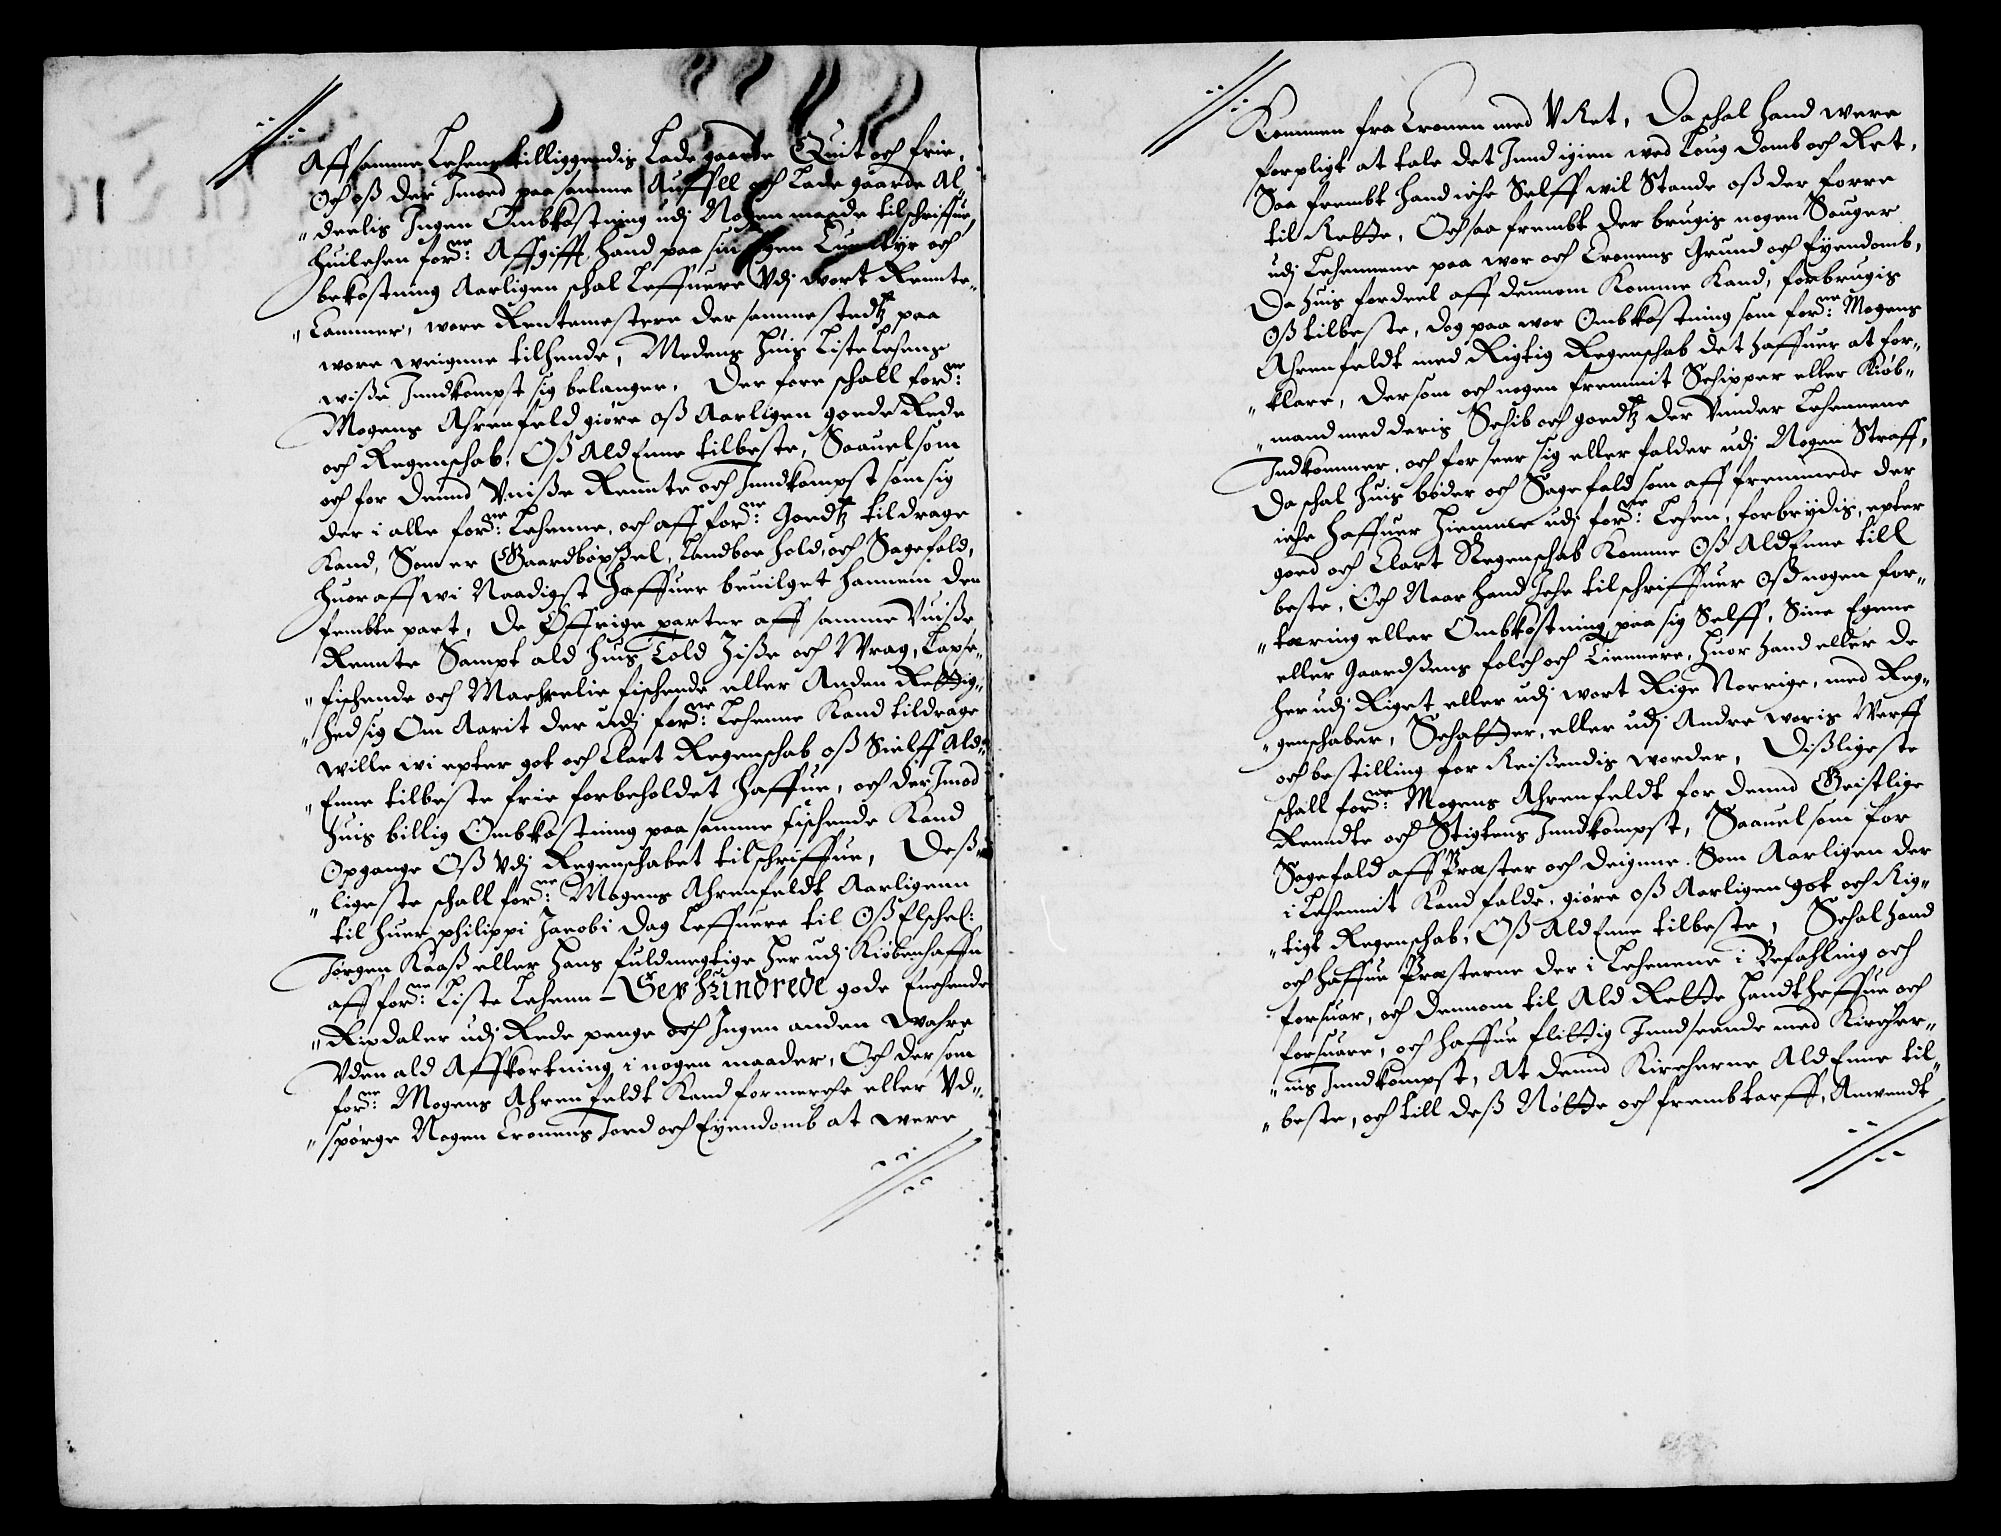 Aff samme Lehens tilliggendis Ladegaarde Quit och frie,
Och oß der Imod paa samme Auffell och Ladegaarde Al„
„deelis Ingen Ombkostning udj Nogen maade tilschriffue,
Huilchen ford:ne Affgifft hand paa sin Egen Euentyr och
bekostning Aarligen schal Leffuere Vdj vort Rennte„
„Cammer, wore Rentemestere der sammestedtz paa
wore weignne tilhende, Medens huis Liste Lehens
wisse Inndkompst sig belanger. Der fore schall ford:ne
Mogens Ahrenfeld giøre oß Aarligen goede Rede
och Regenschab, Oß Ald Enne tilbeste, Saauelsom
och for dennd Vuisse Rennte och Inndkompst som sig
der i alle ford:ne Lehenne, och aff ford:ne Goedtz tildrage
Kand, Som er Gaardbøxßel, Landboe hold, och Sagefald,
huoraff wi Naadigst haffuer beuilget hannem den
fembte part, De Øffrige parter aff samme Vuisse
Rennte Sampt ald huis Told Zise och Wrag, Laxse„
„fischende och Machrelie fischende eller Anden Rettig„
„hed sig Om Aarit der udj ford:ne Lehenne Kand tildrage
wille wi epter got och Clart Regenschab oß Sielff Ald„
„Enne tilbeste frie forbeholdet haffue, och der Imod
huis billig Ombkostning paa samme fischende Kand
Opgange Oß Vdj Regenschabet tilschriffue, Deß„
„ligeste schall ford:ne Mogens Ahrenfeldt Aarligenn
til huer philippi Jacobi Dag Leffuere til Oß Elschel:
Jørgen Kaaß eller hans fuldmegtige her udj Kiøbenhaffn
aff ford:ne Liste Lehenn – Sex Hundrede gode Enchende
„Rixdaler udj Rede penge och Ingen anden Wahre
Vden ald Affkortning i nogen maader, Och dersom
ford:ne Mogens Ahrenfeldt Kand formerche eller Vd„
„spørge Nogen Cronens Jord och Eyendomb at were
Kommen fra Cronen med VRet, Da schal hand were
forpligt at tale det Innd igien wed Loug Domb och Ret,
Saa frembt hand iche Selff wil Stande oß der forre
til Rette, Och saa frembt der brugis nogen Sauger
udj Lehennene paa wor och Cronens Grund och Eyendomb,
Da huis fordeel aff dennom Komme Kand, forbrugis
Oß tilbeste, dog paa wor Ombkostning som ford:ne Mogens
Ahrenfeldt med Rigtig Regenschab det haffuer at for„
„klare, Dersom och nogen fremmit Schipper eller Kiøb„
„mand med deris Schib och goedtz der Vunder Lehennene
Indkommer, och forseer sig eller falder udj Nogen Straff,
Da schal huis bøder och Sagefald som aff fremmede der
iche haffuer hiemme udj ford:ne Lehen, forbrydis, epter
goed och Clart Regenschab Komme Oß Ald Enne till
beste, Och Naar hand Iche tilschriffuer Oß nogen for„
„tæring eller Ombkostning paa sig Selff, Sine Egene
eller Gaardßens folch och Tiennere, huor hand eller de
her udj Riget eller udj wort Rige Norrige, med Reg„
„genschaber, Schatter, eller udj Andre woris Werff
och bestilling for Reißendis worder, Dißligeste
schall ford:ne Mogens Ahrenfeldt for dennd Geistlige
Renndte och Stigtens Inndkompst, Saauelsom for
Sagefald aff Præster och Deigne Som Aarligen der
i Lehennit Kand falde, giøre oß Aarligen got och Rig„
„tigt Regenschab, Oß Ald Enne tilbeste, Schal hand
och haffue Præsterne der i Lehenene i Befahling och
forsuar, och dennom til Ald Rette handthaffue och
forsuare, och haffue flittig Inndseande med Kircher„
„nis Inndkompst, At dennd Kircherne Ald Enne til„
„beste, och till deß Nøtte och frembtarff, Anwendt